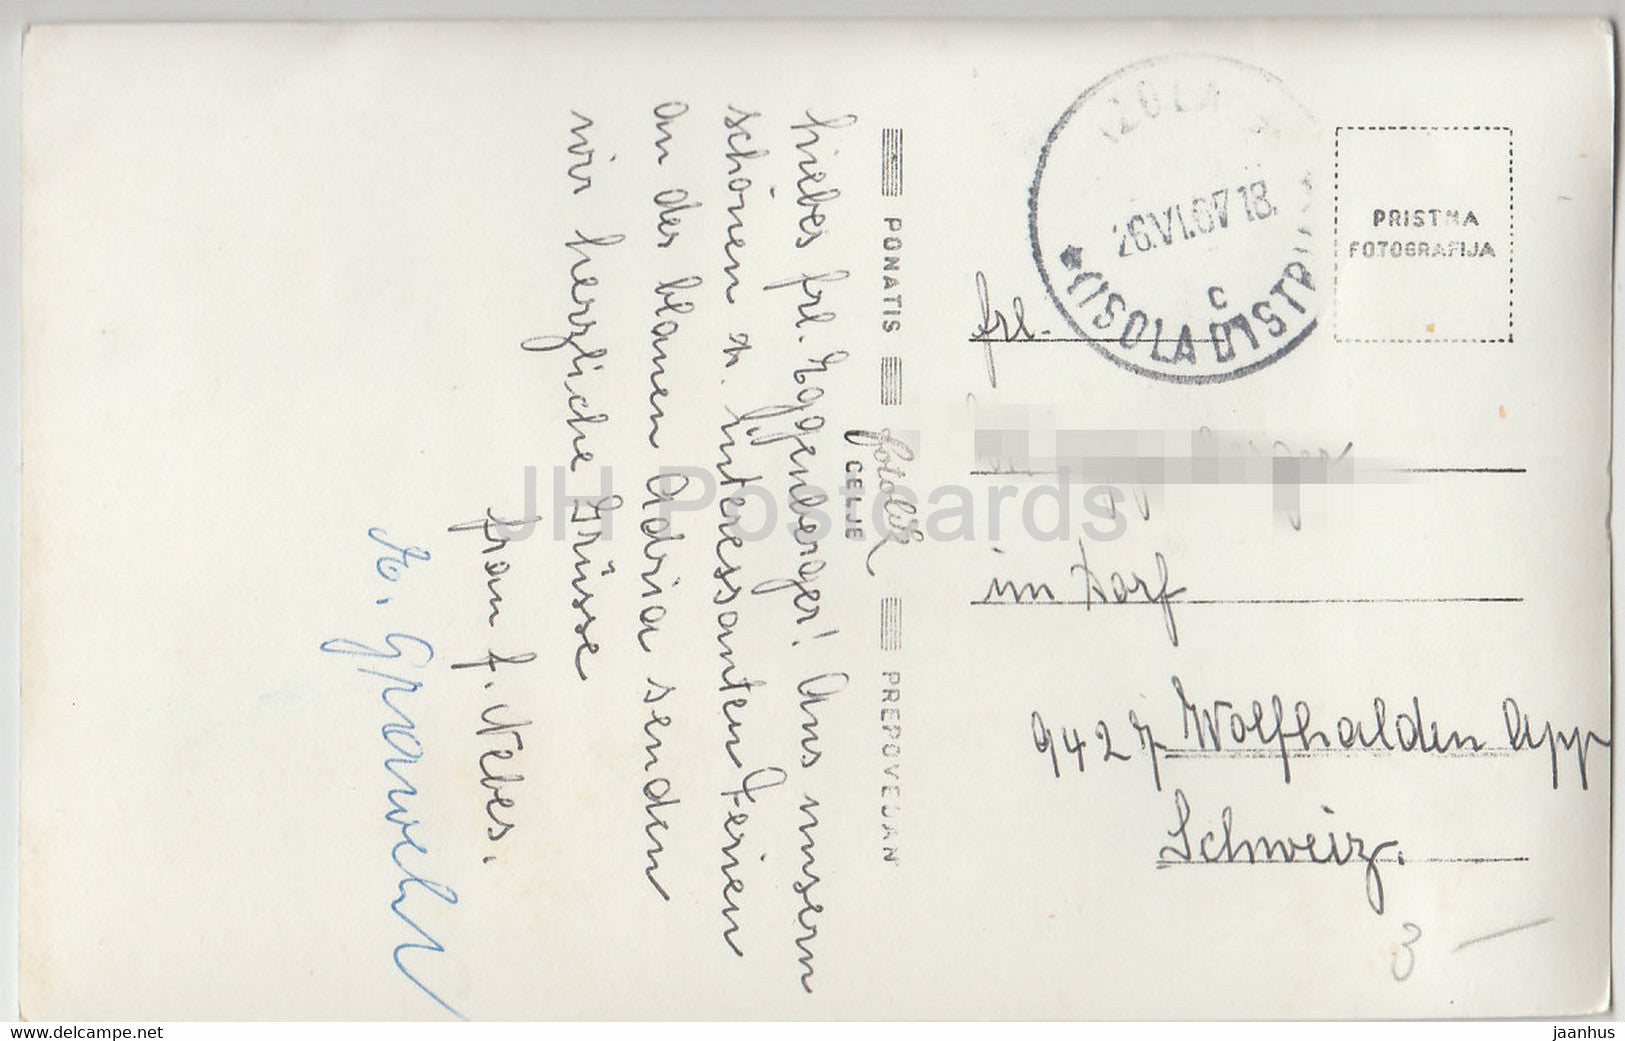 Liebes Frl. Eggenberger! Aus unsern
schönen u. interessanten Ferien
an der blauen Adria senden
wir herzliche Grüsse
Frau F. Nebes.
PONATIS
fotolik
CELJE
PREPOVEJAN
26.VI.67 18.
c
(ISOLA D'ISTRIA)
PRISTNA
FOTOGRAFIJA
Frl.
im Dorf
9427 Wolfhalden App
Schweiz.
3 —
JH Postcards
www.delcampe.net
jaanhus